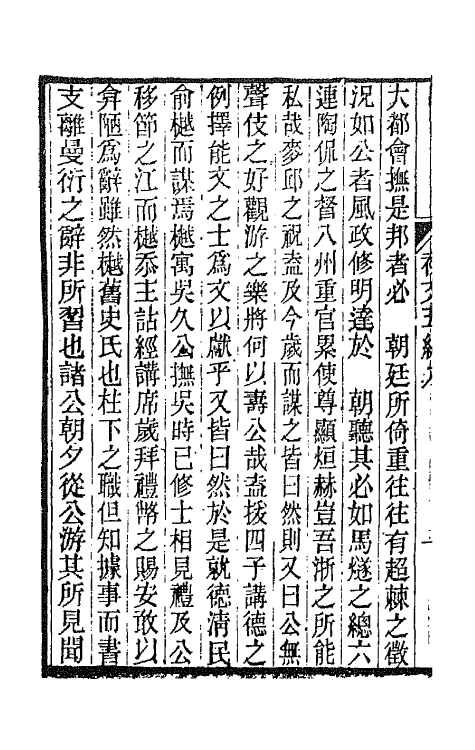 大都會撫是邦者必　朝廷所倚重往往有超棘之徵
況如公者風政修明達於　朝聽其必如馬燧之總六
連陶侃之督八州重官累使尊顯烜赫豈吾浙之所能
私哉麥邱之祝盍及今歲而謀之皆曰然則又曰公無
聲伎之好觀游之樂將何以壽公哉盍援四子講德之
例擇能文之士為文以獻乎又皆曰然於是就德清民
俞樾而謀焉樾寓吳久公撫吳時已修士相見禮及公
移節之江而樾忝主詁經講席歲拜禮幣之賜安敢以
弇陋為辭雖然樾舊史氏也柱下之職但知據事而書
支離曼衍之辭非所習也諸公朝夕從公游其所見聞